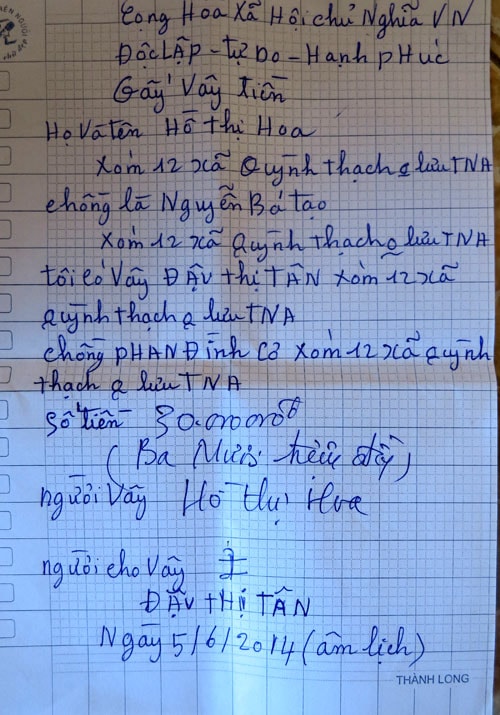 Cộng Hoa Xã Hội chủ Nghĩa VN
Độc LẬP - tự Do - Hạnh pHúc
Giấy Vây tiền
Họ Và tên Hồ thị Hoa
Xóm 12 xã Quỳnh thạch Q lưu TNA
chồng là Nguyễn Bá tạo
Xóm 12 xã Quỳnh thạch Q lưu TNA
tôi có Vây ĐẬU thị TÂN Xóm 12 xã
Quỳnh thạch Q lưu TNA
chồng PHAN Đình Cơ Xóm 12 xã Quỳnh
thạch Q lưu TNA
Số tiền 30.000.000đ
(Ba Mươi triệu đồng)
người Vây Hồ Thị Hoa
người cho Vây
ĐẬU tHỊ TÂN
Ngày 5/6/2014 (âm lịch)
THÀNH LONG